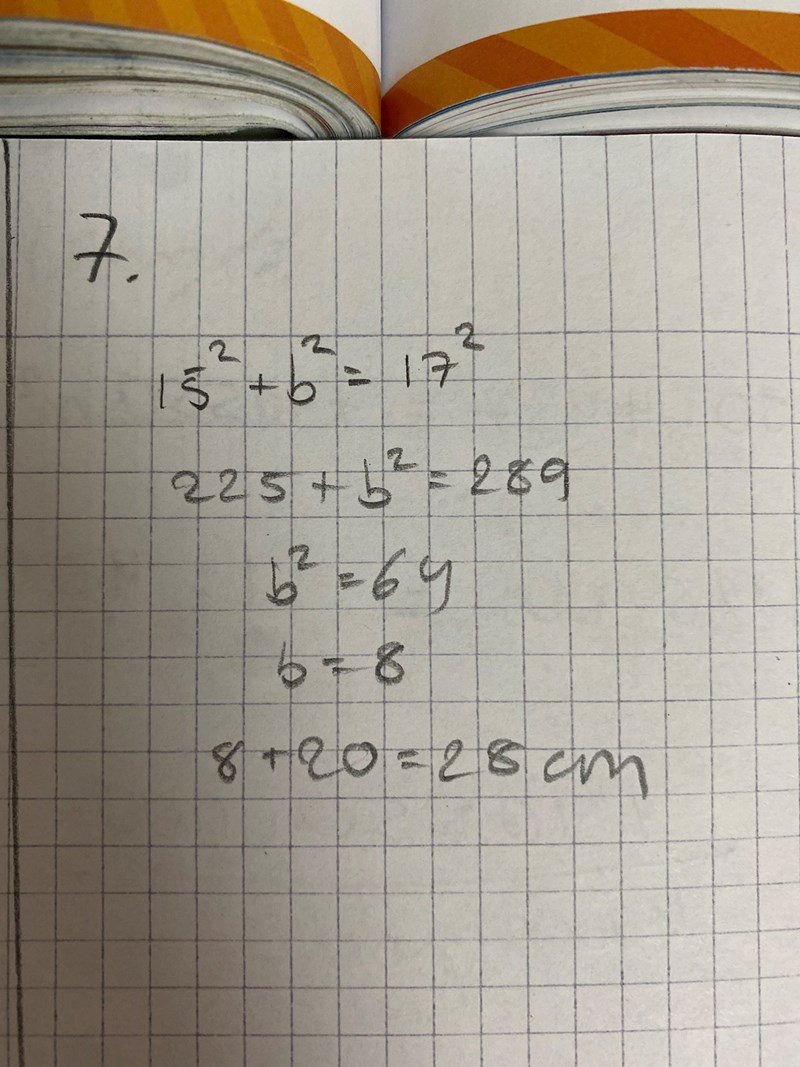 7.
15² + b² = 17²
225 + b² = 289
b² = 64
b = 8
8 + 20 = 28 cm